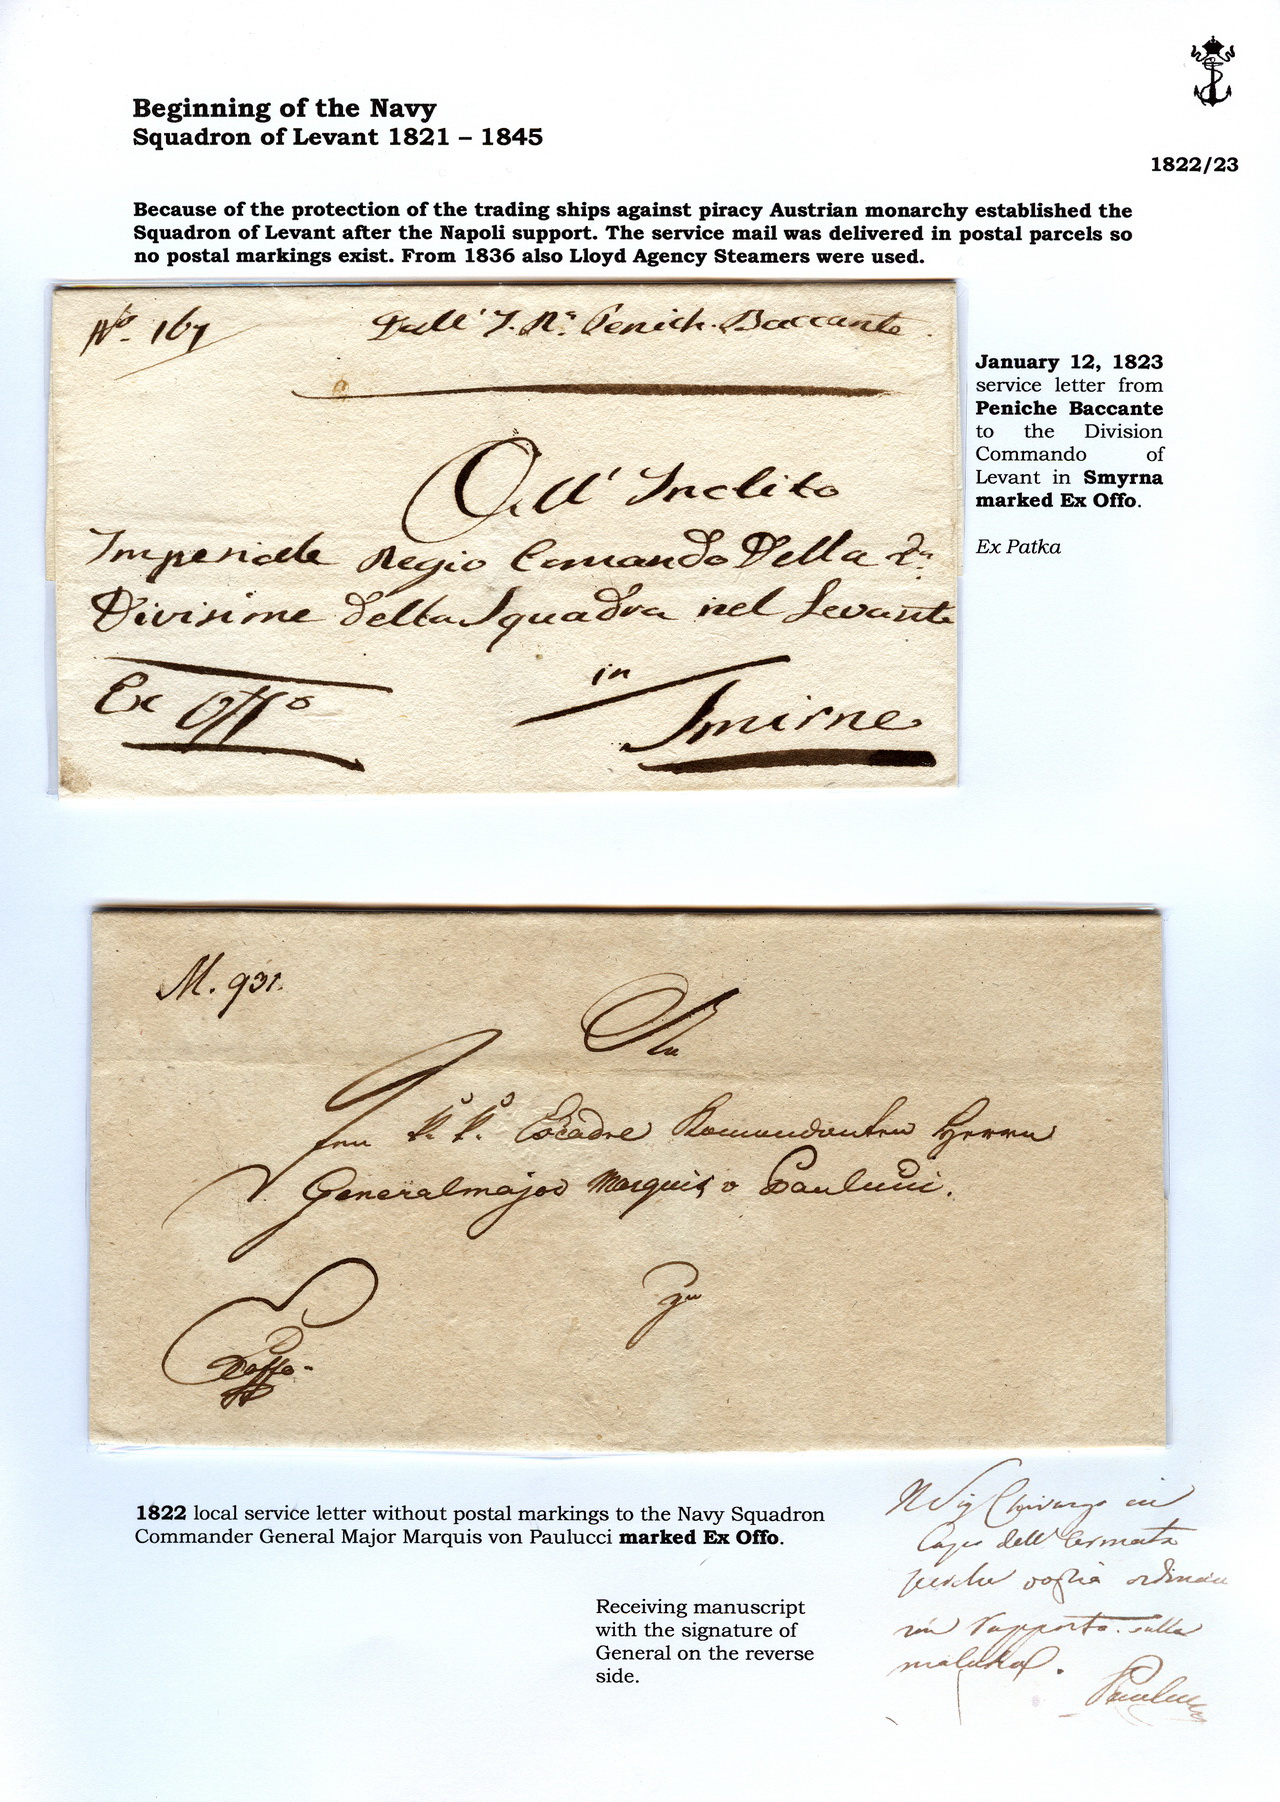 Beginning of the Navy
Squadron of Levant 1821 – 1845
1822/23
Because of the protection of the trading ships against piracy Austrian monarchy established the
Squadron of Levant after the Napoli support. The service mail was delivered in postal parcels so
no postal markings exist. From 1836 also Lloyd Agency Steamers were used.
No. 167
Dall' I. R. Penich. Baccante.
All' Inclito
Imperiale Regio Comando Della 2a
Divisione della Squadra nel Levante
in
Ex Offo
Smirne
January 12, 1823
service letter from
Peniche Baccante
to the Division
Commando of
Levant in Smyrna
marked Ex Offo.
Ex Patka
M. 931.
An
K. K. Escadre Komandanten Herrn
Generalmajor Marquis v Paulucci.
zu
Exoffo
1822 local service letter without postal markings to the Navy Squadron
Commander General Major Marquis von Paulucci marked Ex Offo.
Receiving manuscript
with the signature of
General on the reverse
side.
Al Sig Chirurgo in
Capo dell' Armata
perche voglia
un rapporto sulla
Paulucci